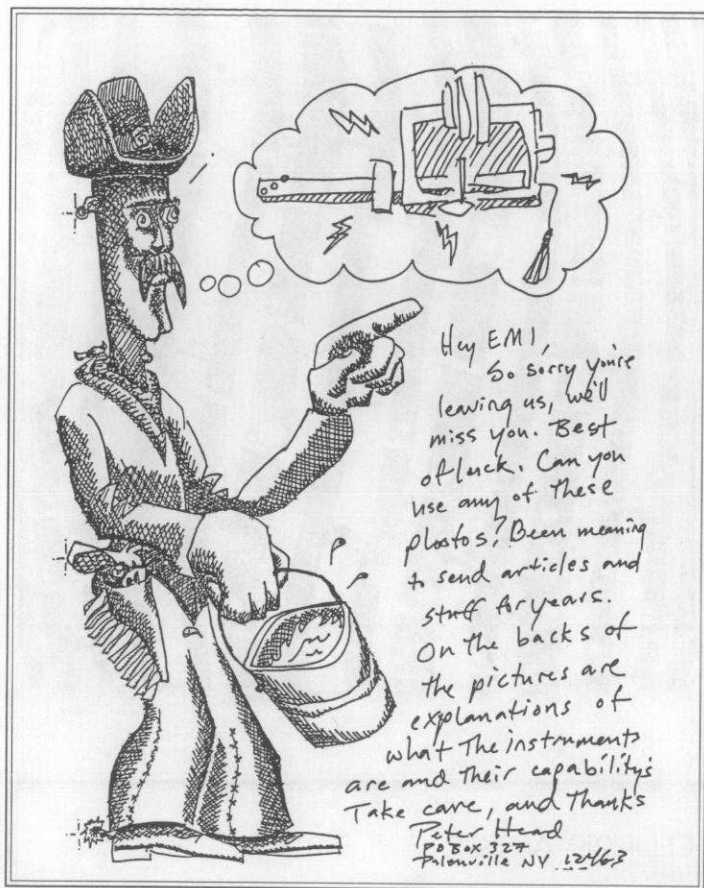 Hey EMI,
So sorry you're
leaving us, we'll
miss you. Best
of luck. Can you
use any of these
photos? Been meaning
to send articles and
stuff for years.
On the backs of
the pictures are
explanations of
what The instruments
are and their capability's
Take care, and Thanks
Peter Head
PO BOX 327
Palenville NY 12463